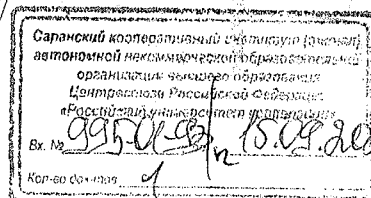 Саранский кооперативный институт (филиал)
автономной некоммерческой образовательной
организации высшего образования
Центросоюза Российской Федерации
«Российский университет кооперации»
Вх. № 15.09.20
Кол-во листов